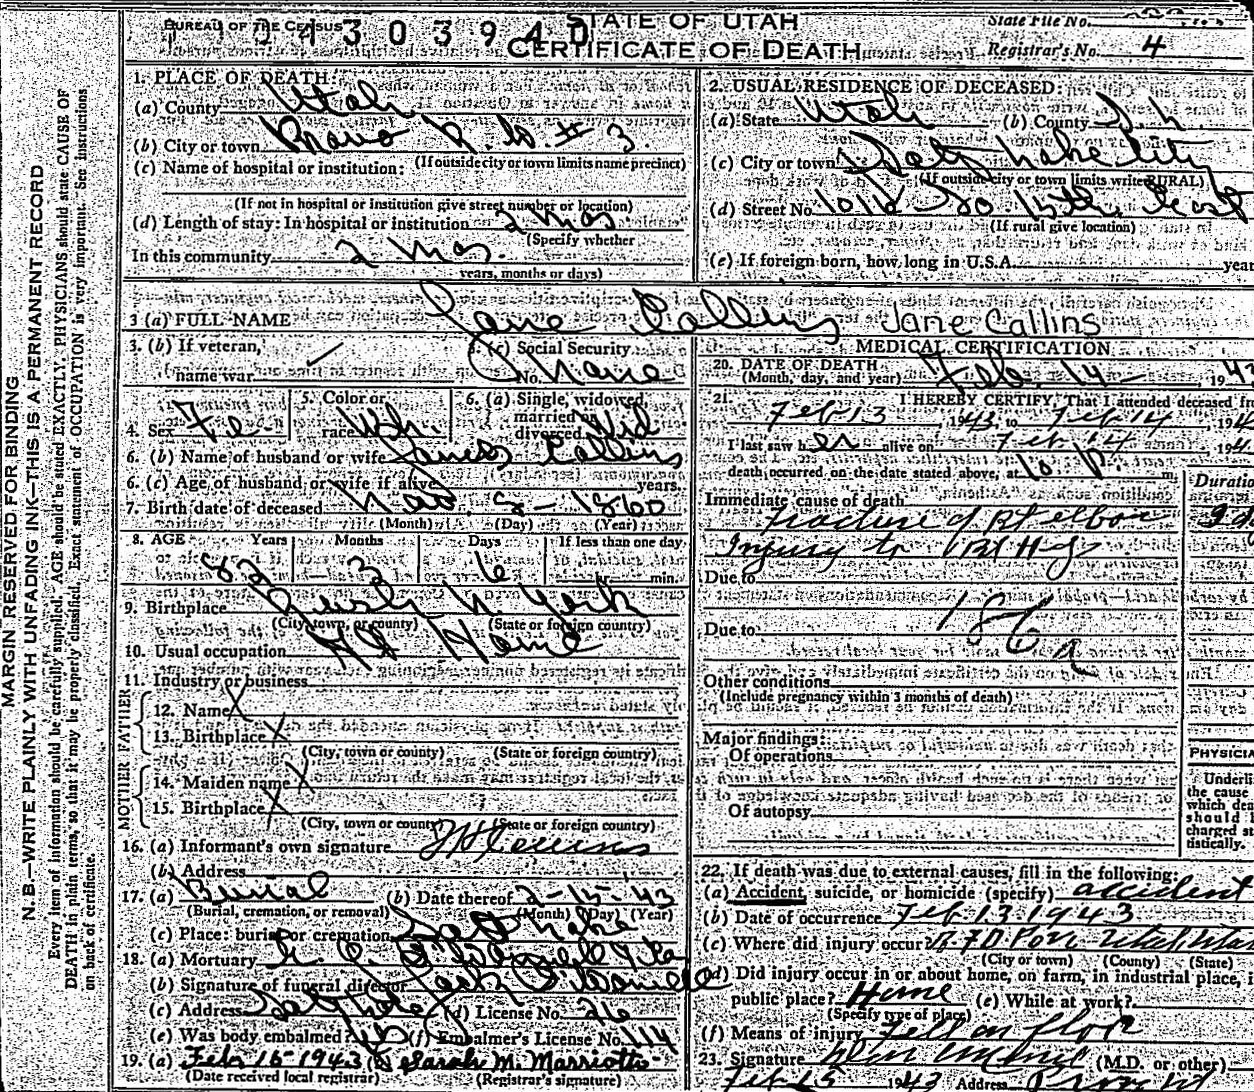 BUREAU OF THE CENSUS
STATE OF UTAH
CERTIFICATE OF DEATH
State File No.
Registrar's No. 4
MARGIN RESERVED FOR BINDING
N. B.—WRITE PLAINLY WITH UNFADING INK—THIS IS A PERMANENT RECORD
Every item of information should be carefully supplied. AGE should be stated EXACTLY. PHYSICIANS should state CAUSE OF
DEATH in plain terms, so that it may be properly classified. Exact statement of OCCUPATION is very important. See instructions
on back of certificate.
1. PLACE OF DEATH:
(a) County Utah
(b) City or town Provo R. #3.
(If outside city or town limits name precinct)
(c) Name of hospital or institution:
(If not in hospital or institution give street number or location)
(d) Length of stay: In hospital or institution 2 mos
(Specify whether
In this community 2 mos.
years, months or days)
2. USUAL RESIDENCE OF DECEASED:
(a) State Utah (b) County S. L.
(c) City or town Salt Lake City
(If outside city or town limits write RURAL)
(d) Street No. So 15th East
(If rural give location)
(e) If foreign born, how long in U.S.A. year
3 (a) FULL NAME Jane Collins Jane Callins
3. (b) If veteran,
name war
3. (c) Social Security
No. None
4. Sex Fe
5. Color or
race Wh.
6. (a) Single, widowed,
married or
divorced Wid
6. (b) Name of husband or wife James Collins
6. (c) Age of husband or wife if alive years.
7. Birth date of deceased Nov. 8 - 1860
(Month) (Day) (Year)
8. AGE Years Months Days If less than one day
82 3 6 min.
9. Birthplace N. York
(City, town, or county) (State or foreign country)
10. Usual occupation At Home
11. Industry or business
FATHER
12. Name X
13. Birthplace X
(City, town or county) (State or foreign country)
MOTHER
14. Maiden name X
15. Birthplace X
(City, town or county) (State or foreign country)
16. (a) Informant's own signature Collins
(b) Address
17. (a) Burial (b) Date thereof 2-15-'43
(Burial, cremation, or removal) (Month) (Day) (Year)
(c) Place: burial or cremation Salt Lake
18. (a) Mortuary
(b) Signature of funeral director
(c) Address Salt Lake (d) License No. 26
(e) Was body embalmed? yes (f) Embalmer's License No. 114
19. (a) Feb 15 1943 (b) Sarah M. Marriott
(Date received local registrar) (Registrar's signature)
MEDICAL CERTIFICATION
20. DATE OF DEATH
(Month, day, and year) Feb. 14 -, 1943
21. I HEREBY CERTIFY, That I attended deceased fr
Feb 13, 1943, to Feb 14, 194
I last saw her alive on Feb 14, 194
death occurred on the date stated above, at 10 P. m.
Duratio
Immediate cause of death
fracture of Rt elbow
Injury to Rt Hip
Due to
Due to
186a
Other conditions
(Include pregnancy within 3 months of death)
Major findings:
Of operations
Of autopsy
PHYSICIA
Underli
the cause
which dea
should b
charged st
tistically.
22. If death was due to external causes, fill in the following:
(a) Accident, suicide, or homicide (specify) accident
(b) Date of occurrence Feb 13. 1943
(c) Where did injury occur? RFD Utah
(City or town) (County) (State)
(d) Did injury occur in or about home, on farm, in industrial place, i
public place? Home (e) While at work?
(Specify type of place)
(f) Means of injury Fell on floor
23. Signature (M.D. or other)
Feb 15 1943 Address